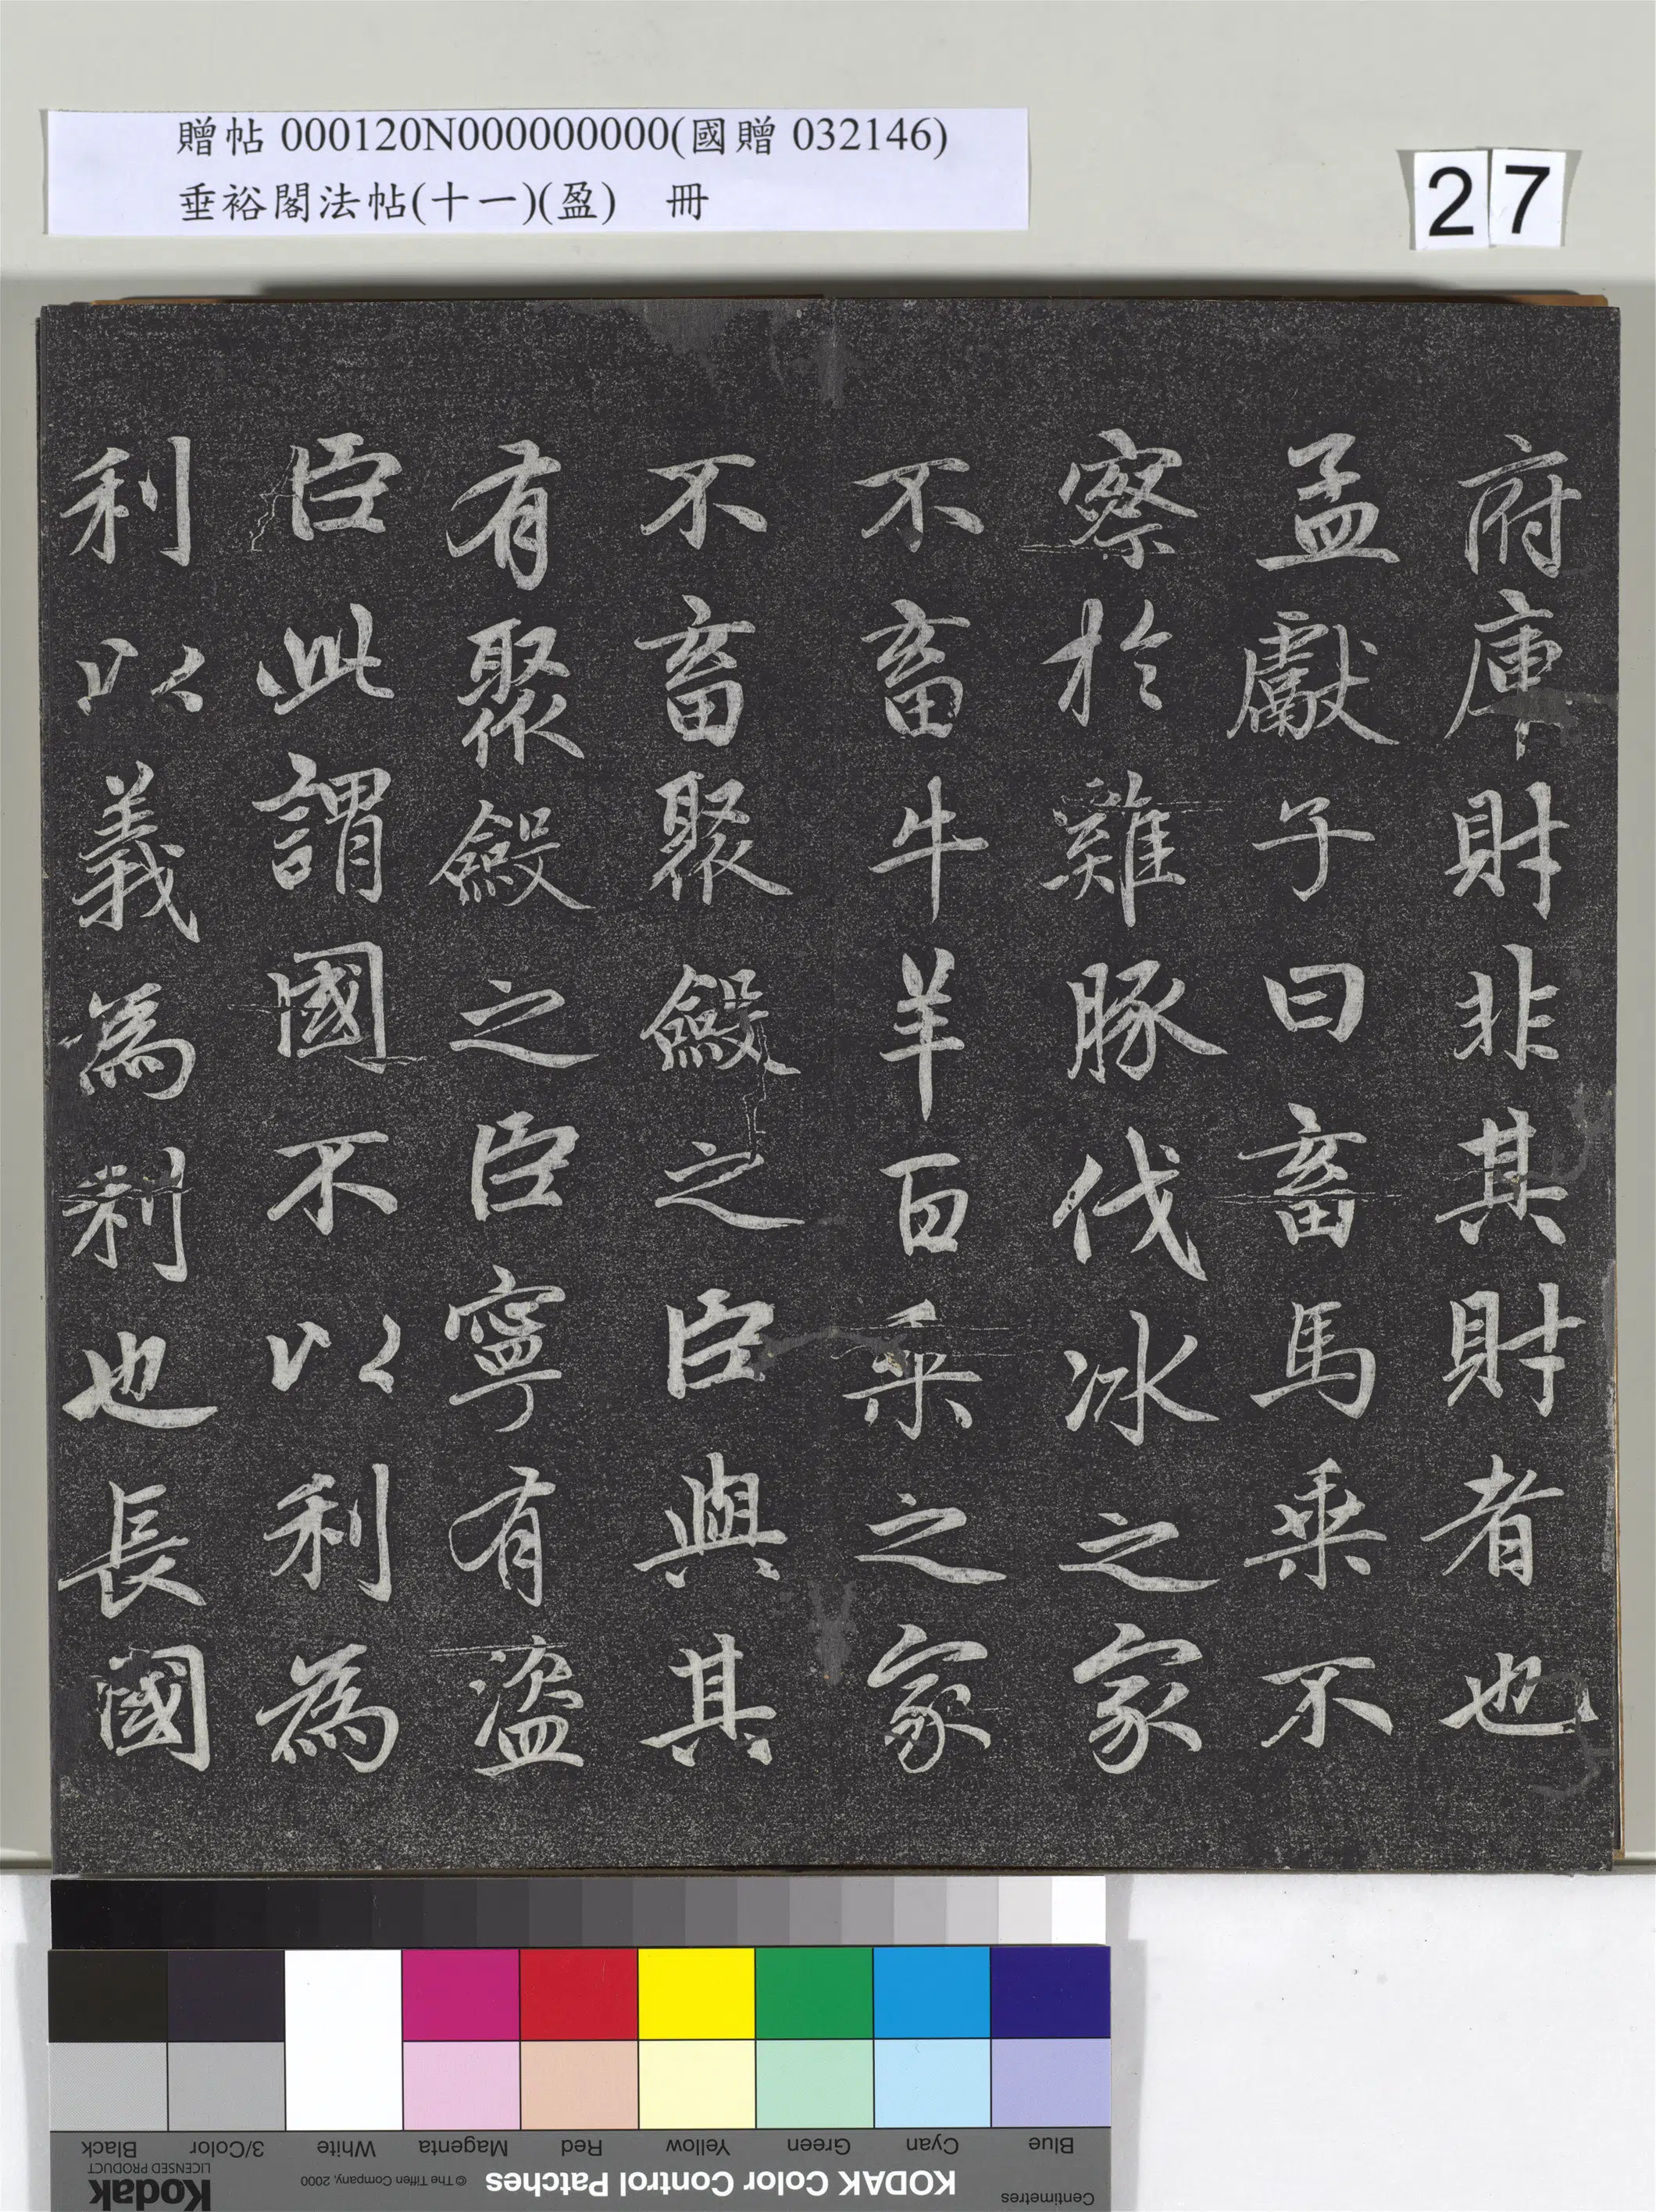 贈帖 000120N000000000(國贈 032146)
垂裕閣法帖(十一)(盈) 冊
27
府庫財非其財者也
孟獻子曰畜馬乘不
察於雞豚伐冰之家
不畜牛羊百乘之家
不畜聚斂之臣與其
有聚斂之臣寧有盜
臣此謂國不以利為
利以義為利也長國
Blue Cyan Green Yellow Red Magenta White 3/Color Black
Centimetres
KODAK Color Control Patches
© The Tiffen Company, 2000
Kodak
LICENSED PRODUCT